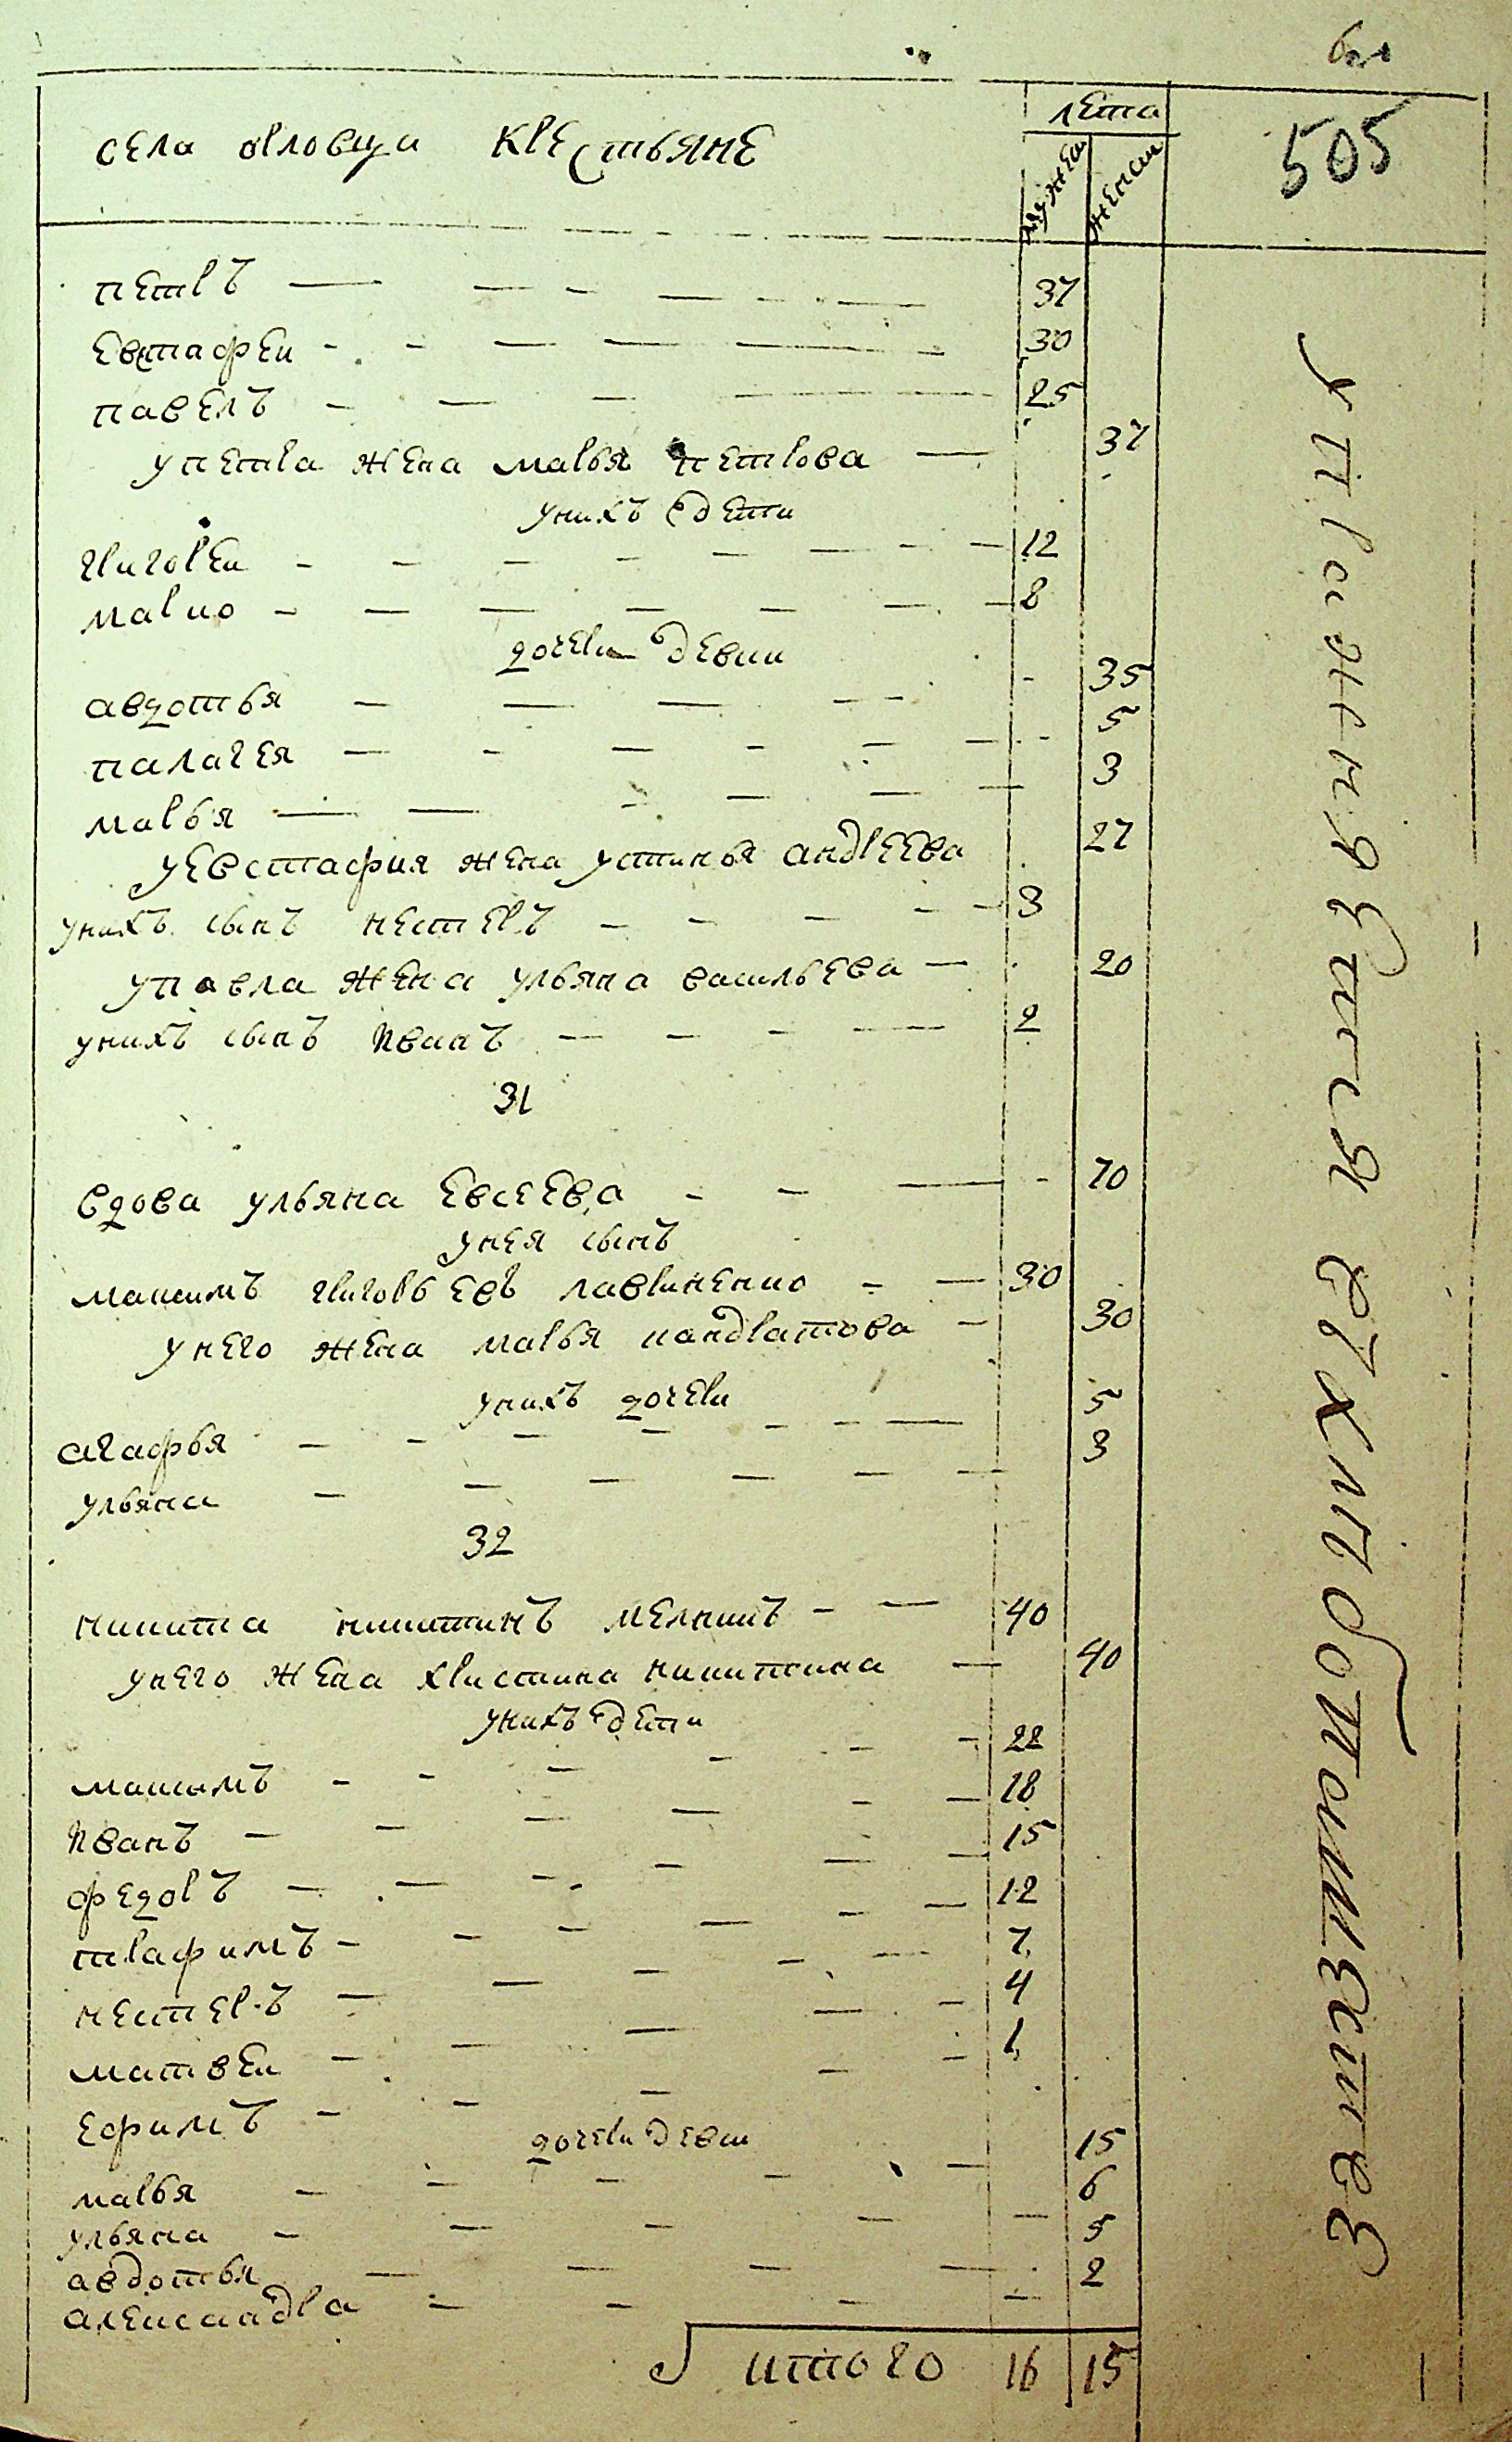 505
села орловца крестьяне
лета
мужеск
женск
петръ 37
евстафеи 30
павелъ 25
упетра жена марья петрова 37
унихъ дети
григореи 12
марко 8
дочери девки
авдотья 35
палагея 5
марья 3
уевстафия жена устинья андреева 27
унихъ сынъ нестеръ 3
упавла жена ульяна васильева 20
унихъ сынъ иванъ 2
31
вдова ульяна евсеева 70
унея сынъ
максимъ григорьевъ лавриненко 30
унего жена марья кандратова 30
унихъ дочери
агафья 5
ульяна 3
32
никита никитинъ мелникъ 40
унего жена христина никитина 40
унихъ дети
максимъ 22
иванъ 18
федоръ 15
трафимъ 12
нестеръ 7
матвеи 4
ефимъ 1
дочери девки
марья 15
ульяна 6
авдотья 5
александра 2
итого 16 15
упражнятися въ хлебопашестве